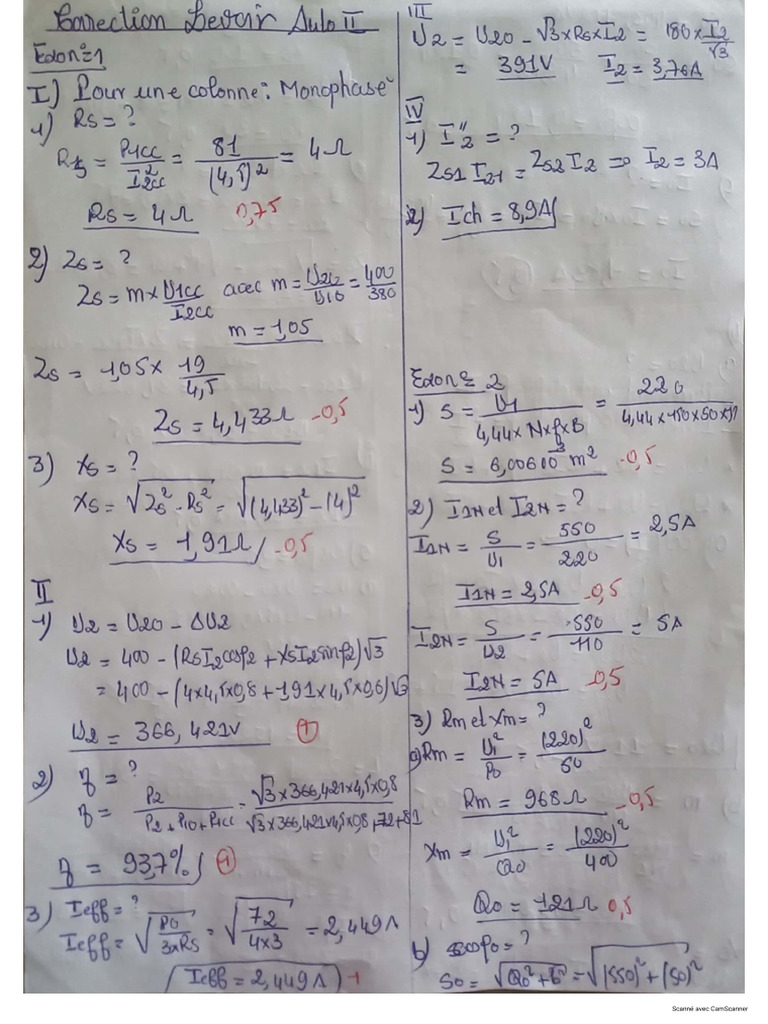 Correction Devoir Auto II
Exo n°=1
I) Pour une colonne: Monophasé
1) Rs = ?
Rs = P1cc / I²2cc = 81 / (4,5)² = 4Ω
Rs = 4Ω 0,75
2) Zs = ?
Zs = m x U1cc / I2cc avec m = U20 / U10 = 400 / 380
m = 1,05
Zs = 1,05 x 19 / 4,5
Zs = 4,433Ω -0,5
3) Xs = ?
Xs = √Zs² - Rs² = √(4,433)² - (4)²
Xs = 1,91Ω -0,5
II
1) U2 = U20 - ΔU2
U2 = 400 - (RsI2cosφ2 + XsI2sinφ2)√3
= 400 - (4x4,5x0,8 + 1,91x4,5x0,6)√3
U2 = 366,421V 1
2) η = ?
η = P2 / P2 + P10 + P1cc = √3 x 366,421 x 4,5 x 0,8 / √3 x 366,421 x 4,5 x 0,8 + 72 + 81
η = 93,7% 1
3) Ieff = ?
Ieff = √P0 / 3xRs = √72 / 4x3 = 2,449A
Ieff = 2,449A 1
III
U2 = U20 - √3 x Rs x I2 = 180 x I2 / √3
= 391V I2 = 3,76A
IV
1) I"2 = ?
Zs1 I21 = Zs2 I2 => I2 = 3A
2) Ich = 8,9A
Exo n= 2
1) S = U1 / 4,44 x N x f x B = 220 / 4,44 x 150 x 50 x
S = 6,00610⁻³ m² -0,5
2) I1N et I2N = ?
I1N = S / U1 = 550 / 220 = 2,5A
I1N = 2,5A -0,5
I2N = S / U2 = 550 / 110 = 5A
I2N = 5A -0,5
3) Rm et Xm = ?
a) Rm = U1² / P0 = (220)² / 50
Rm = 968Ω -0,5
Xm = U1² / Q0 = (220)² / 400
Q0 = 121Ω 0,5
b) cosφ0 = ?
S0 = = √(550)² + (50)²
Scanné avec CamScanner